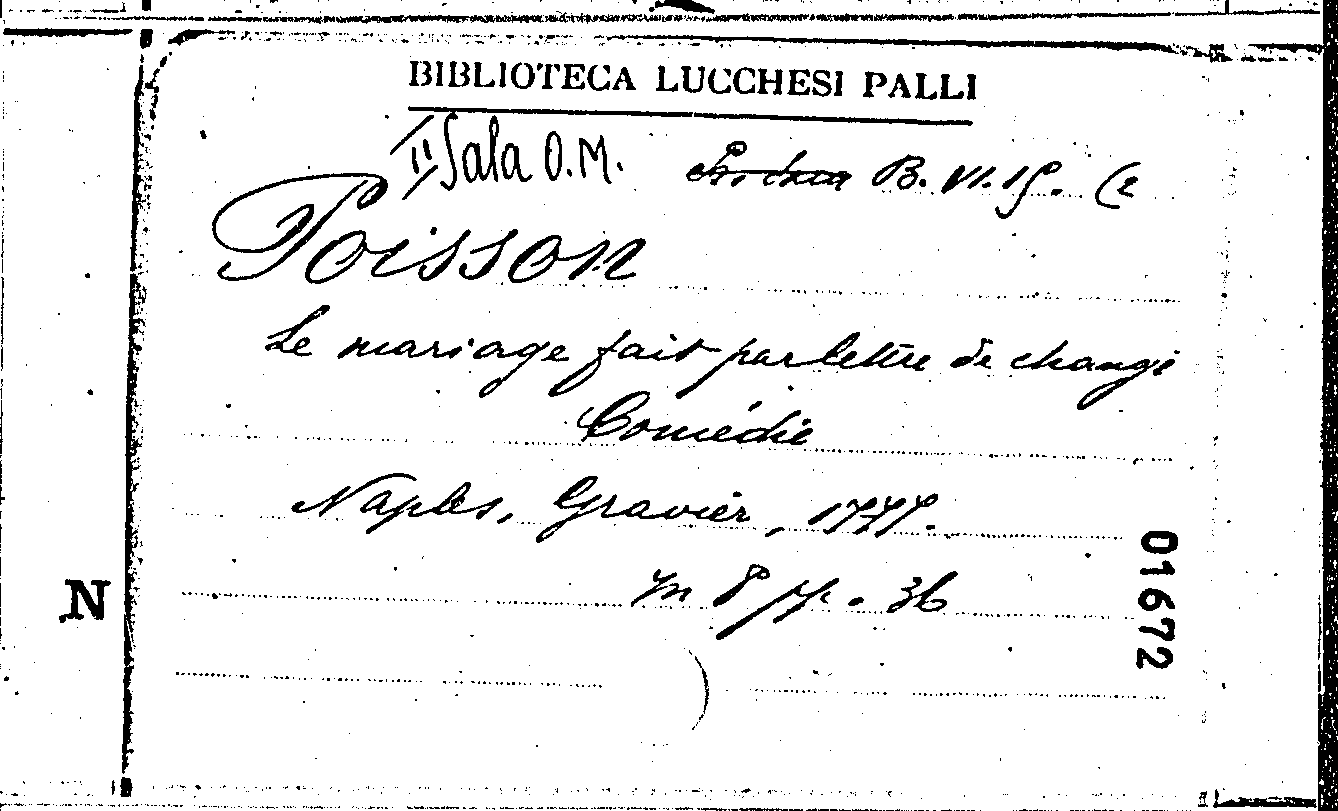 BIBLIOTECA LUCCHESI PALLI
II Sala O.M. B. VI. 15. (2
Poisson
Le mariage fait par lettre de change
Comédie
Naples, Gravier, 1777.
in 8 pp. 36
N
01672